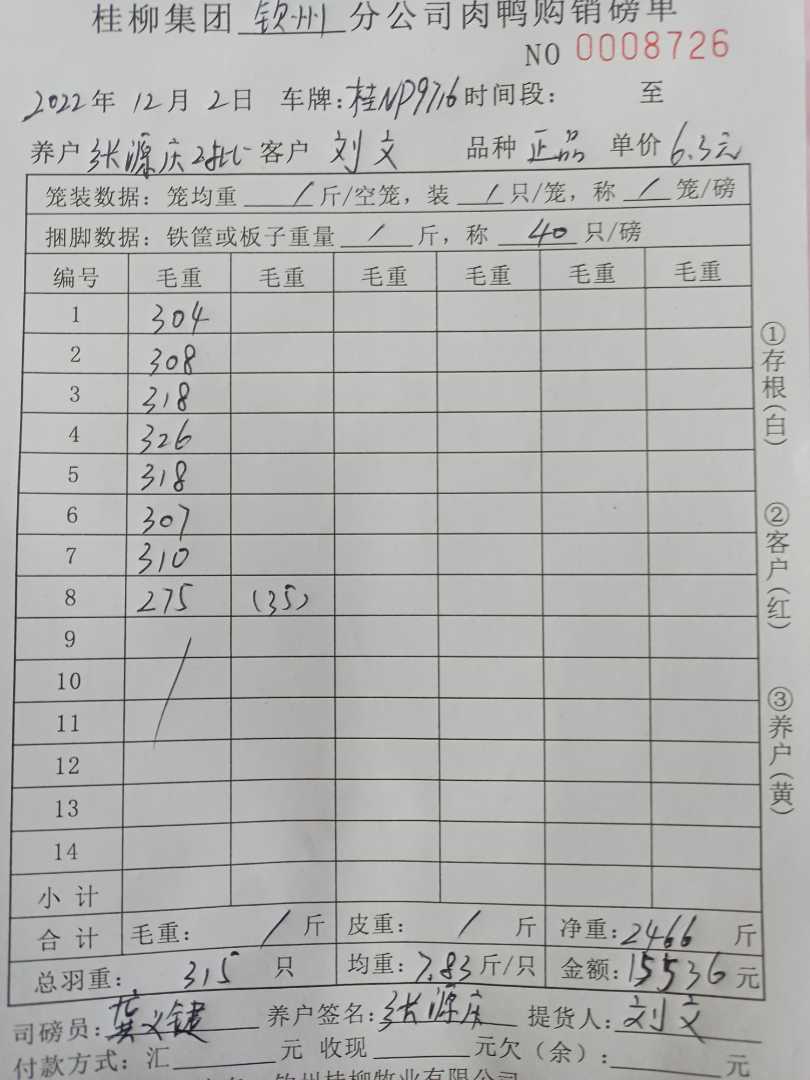 桂柳集团 钦州 分公司肉鸭购销磅单
NO 0008726
2022年 12月 2日 车牌:桂NP9716 时间段: 至
养户 张源庆2批 客户 刘文 品种 正品 单价 6.3元
笼装数据:笼均重 / 斤/空笼,装 / 只/笼,称 / 笼/磅
捆脚数据:铁筐或板子重量 / 斤,称 40 只/磅
编号 毛重 毛重 毛重 毛重 毛重 毛重
1 304
2 308
3 318
4 326
5 318
6 307
7 310
8 275 (35)
9
10
11
12
13
14
小计
合计 毛重: / 斤 皮重: / 斤 净重:2466 斤
总羽重: 315 只 均重:7.83斤/只 金额:15536元
司磅员:龚义键 养户签名:张源庆 提货人:刘文
付款方式:汇 元 收现 元欠(余): 元
钦州桂柳牧业有限公司
①存根(白)
②客户(红)
③养户(黄)